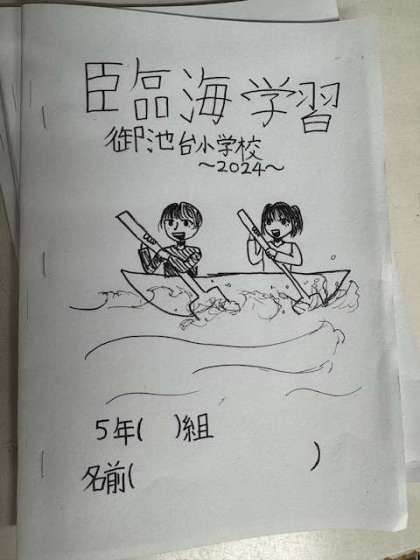 臨海学習
御池台小学校
～2024～
5年(　)組
名前(　　　　　　)